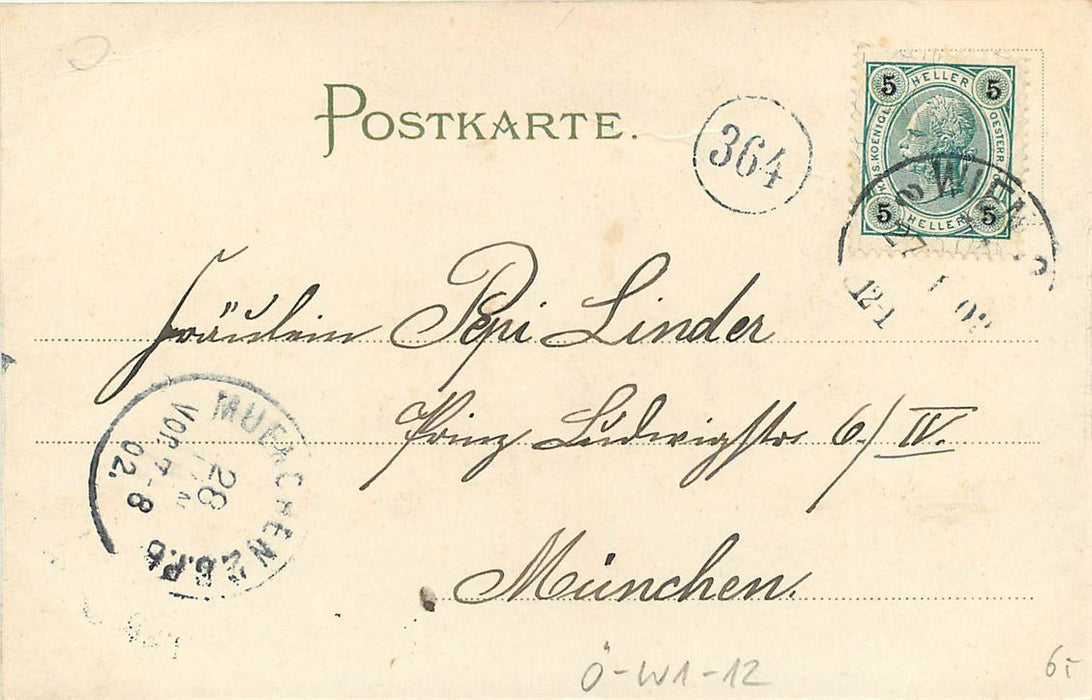 POSTKARTE.
364
5 HELLER 5
KAIS. KOENIGL. OESTERR.
5 HELLER 5
WIEN
12-1
02
Fräulein Pepi Linder
Prinz Ludwigstr 6./IV.
München.
MUENCHEN 2 B.P.
VOR. 7-8
28
02.
Ö-W1-12
65